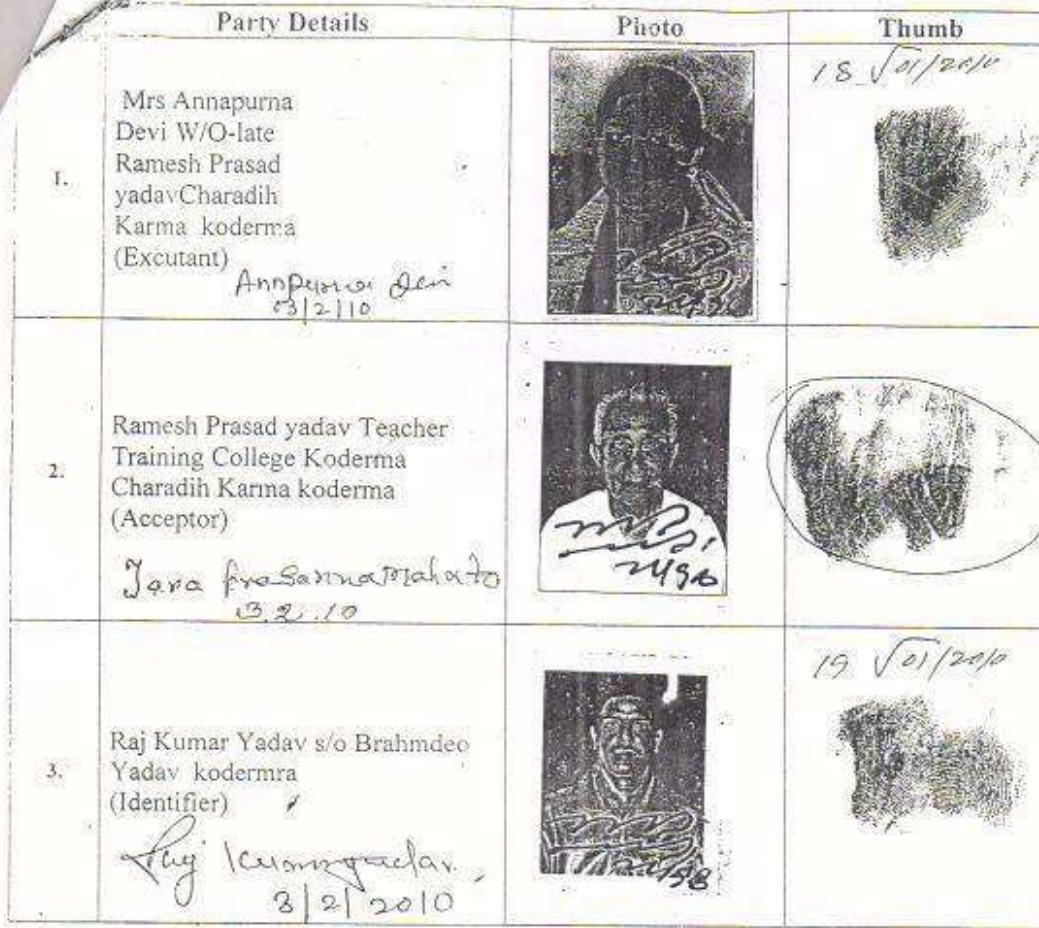 Party Details Photo Thumb
1.
Mrs Annapurna
Devi W/O-late
Ramesh Prasad
yadavCharadih
Karma koderma
(Excutant)
Annpurna Devi
03/2/10
18 √01/2010
2.
Ramesh Prasad yadav Teacher
Training College Koderma
Charadih Karma koderma
(Acceptor)
Tara prasanna Mahato
3.2.10
3.
Raj Kumar Yadav s/o Brahmdeo
Yadav kodermra
(Identifier)
Raj Kumar yadav
3/2/2010
19 √01/2010